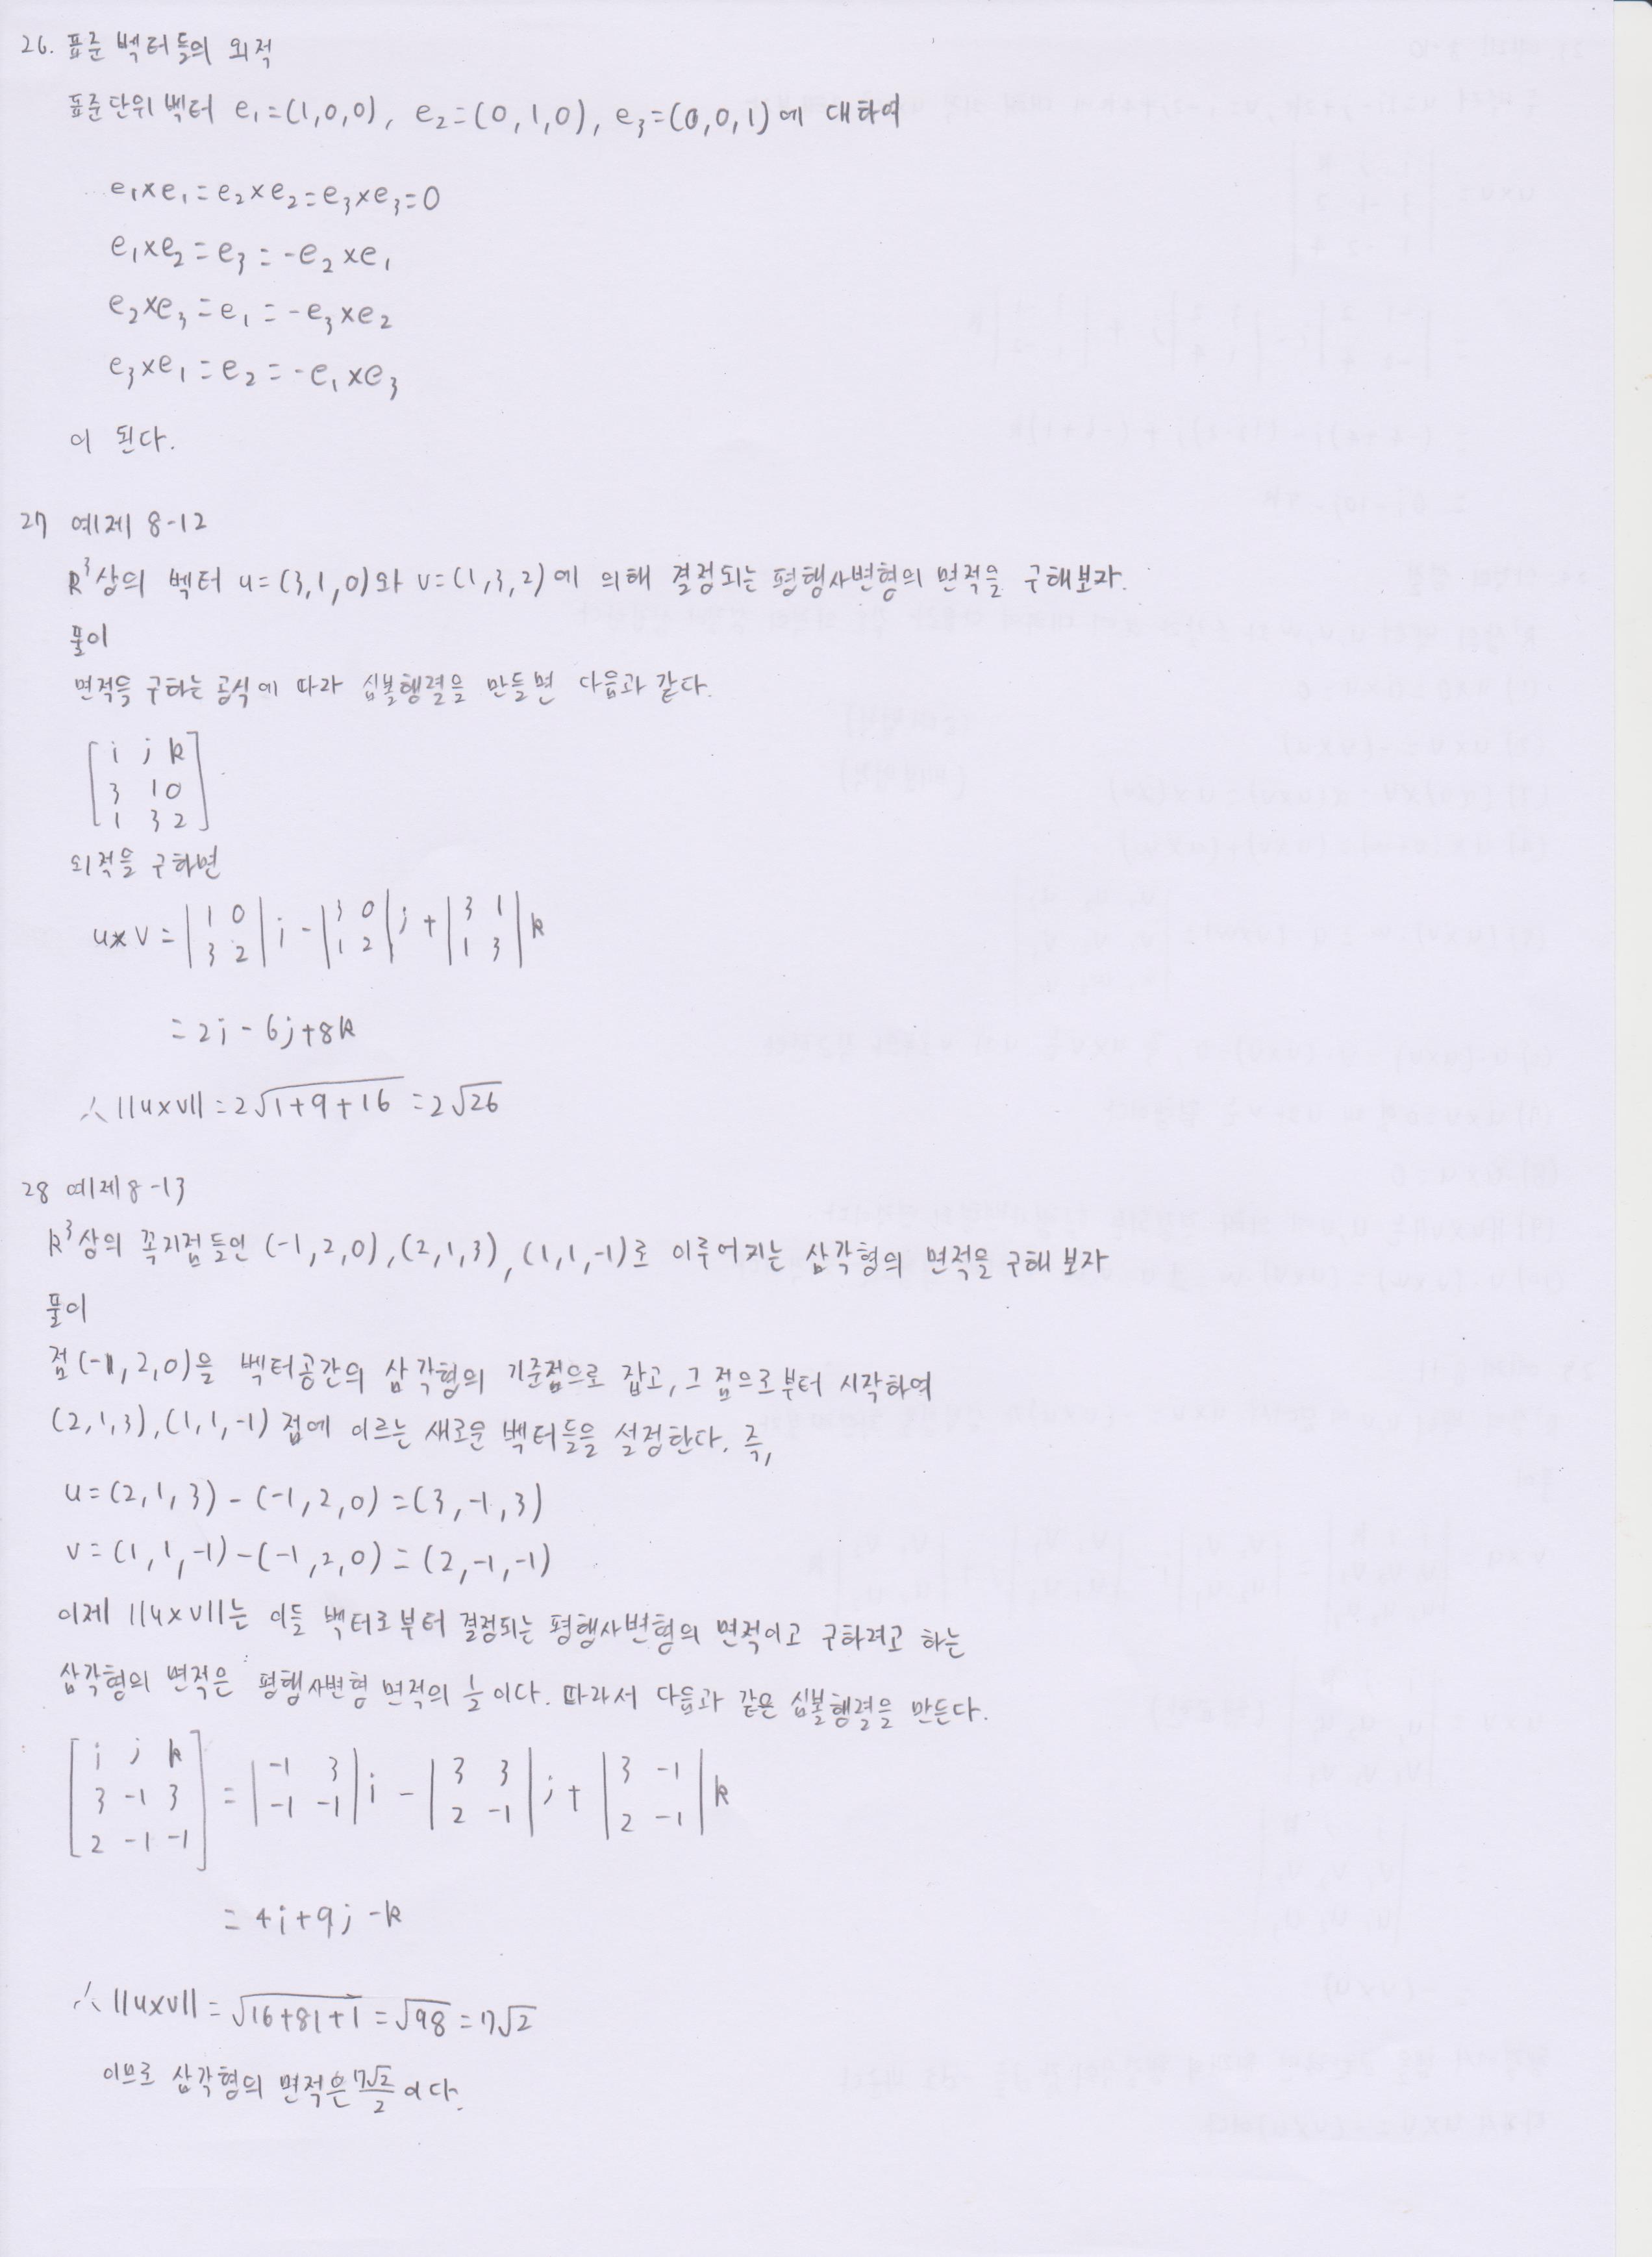 26. 표준 벡터들의 외적
표준단위 벡터 e₁=(1,0,0), e₂=(0,1,0), e₃=(0,0,1)에 대하여
e₁×e₁=e₂×e₂=e₃×e₃=0
e₁×e₂=e₃=-e₂×e₁
e₂×e₃=e₁=-e₃×e₂
e₃×e₁=e₂=-e₁×e₃
이 된다.
27 예제 8-12
R³상의 벡터 u=(3,1,0)와 v=(1,3,2)에 의해 결정되는 평행사변형의 면적을 구해보자.
풀이
면적을 구하는 공식에 따라 심볼행렬을 만들면 다음과 같다.
[i j k
3 1 0
1 3 2]
외적을 구하면
u×v=|1 0; 3 2|i-|3 0; 1 2|j+|3 1; 1 3|k
=2i-6j+8k
∴||u×v||=2√(1+9+16)=2√26
28 예제8-13
R³상의 꼭지점들인 (-1,2,0),(2,1,3),(1,1,-1)로 이루어지는 삼각형의 면적을 구해 보자
풀이
점(-1,2,0)을 벡터공간의 삼각형의 기준점으로 잡고, 그 점으로부터 시작하여
(2,1,3),(1,1,-1) 점에 이르는 새로운 벡터들을 설정한다. 즉,
u=(2,1,3)-(-1,2,0)=(3,-1,3)
v=(1,1,-1)-(-1,2,0)=(2,-1,-1)
이제 ||u×v||는 이들 벡터로부터 결정되는 평행사변형의 면적이고 구하려고 하는
삼각형의 면적은 평행사변형 면적의 ½이다. 따라서 다음과 같은 심볼행렬을 만든다.
[i j k; 3 -1 3; 2 -1 -1]=|-1 3; -1 -1|i-|3 3; 2 -1|j+|3 -1; 2 -1|k
=4i+9j-k
∴||u×v||=√(16+81+1)=√98=7√2
이므로 삼각형의 면적은 7√2/2 이다.